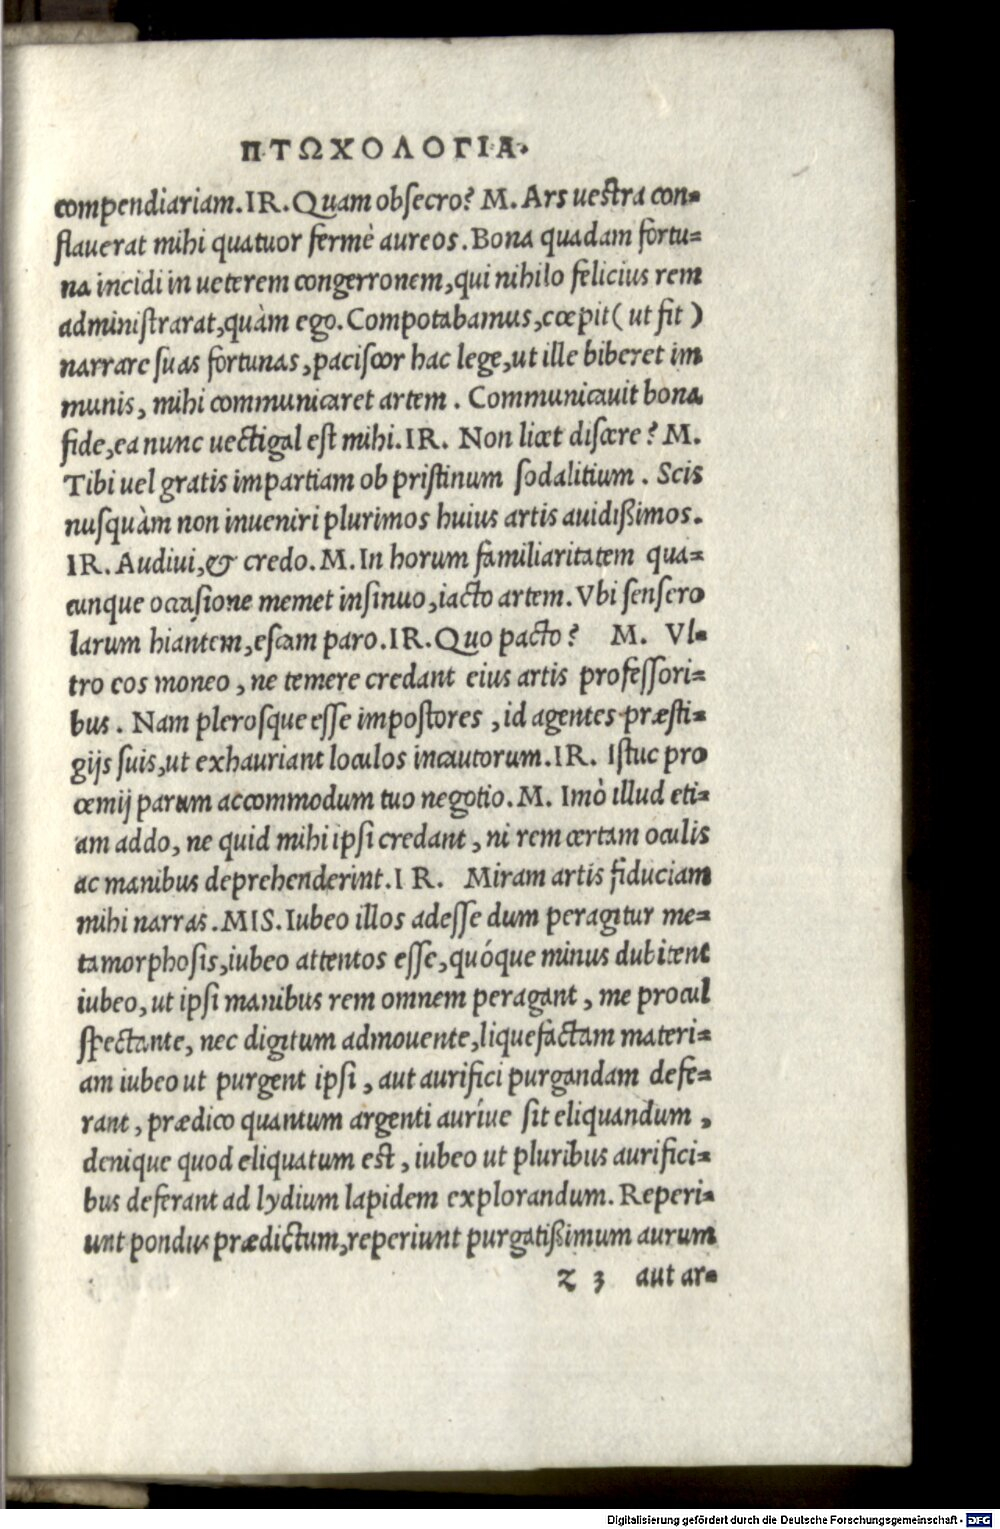 ΠΤΩΧΟΛΟΓΙΑ.
compendiariam. IR. Quam obſecro? M. Ars ueſtra con=
flauerat mihi quatuor fermè aureos. Bona quadam fortu=
na incidi in ueterem congerronem, qui nihilo felicius rem
adminiſtrarat, quàm ego. Compotabamus, cœpit ( ut fit )
narrare ſuas fortunas, paciſcor hac lege, ut ille biberet im
munis, mihi communicaret artem. Communicauit bona
fide, ea nunc uectigal eſt mihi. IR. Non licet diſcere? M.
Tibi uel gratis impartiam ob priſtinum ſodalitium. Scis
nuſquàm non inueniri plurimos huius artis auidißimos.
IR. Audiui, & credo. M. In horum familiaritatem qua=
cunque occaſione memet inſinuo, iacto artem. Vbi ſenſero
larum hiantem, eſcam paro. IR. Quo pacto? M. Vl=
tro eos moneo, ne temere credant eius artis profeſſori=
bus. Nam pleroſque eſſe impoſtores, id agentes præſti=
gijs ſuis, ut exhauriant loculos incautorum. IR. Iſtuc pro
œmij parum accommodum tuo negotio. M. Imò illud eti=
am addo, ne quid mihi ipſi credant, ni rem certam oculis
ac manibus deprehenderint. I R. Miram artis fiduciam
mihi narras. MIS. Iubeo illos adeſſe dum peragitur me=
tamorphoſis, iubeo attentos eſſe, quóque minus dubitent
iubeo, ut ipſi manibus rem omnem peragant, me procul
ſpectante, nec digitum admouente, liquefactam materi=
am iubeo ut purgent ipſi, aut aurifici purgandam defe=
rant, prædico quantum argenti auríue ſit eliquandum,
denique quod eliquatum eſt, iubeo ut pluribus aurifici=
bus deferant ad lydium lapidem explorandum. Reperi=
unt pondus prædictum, reperiunt purgatißimum aurum
z 3 aut ar=
Digitalisierung gefördert durch die Deutsche Forschungsgemeinschaft - DFG